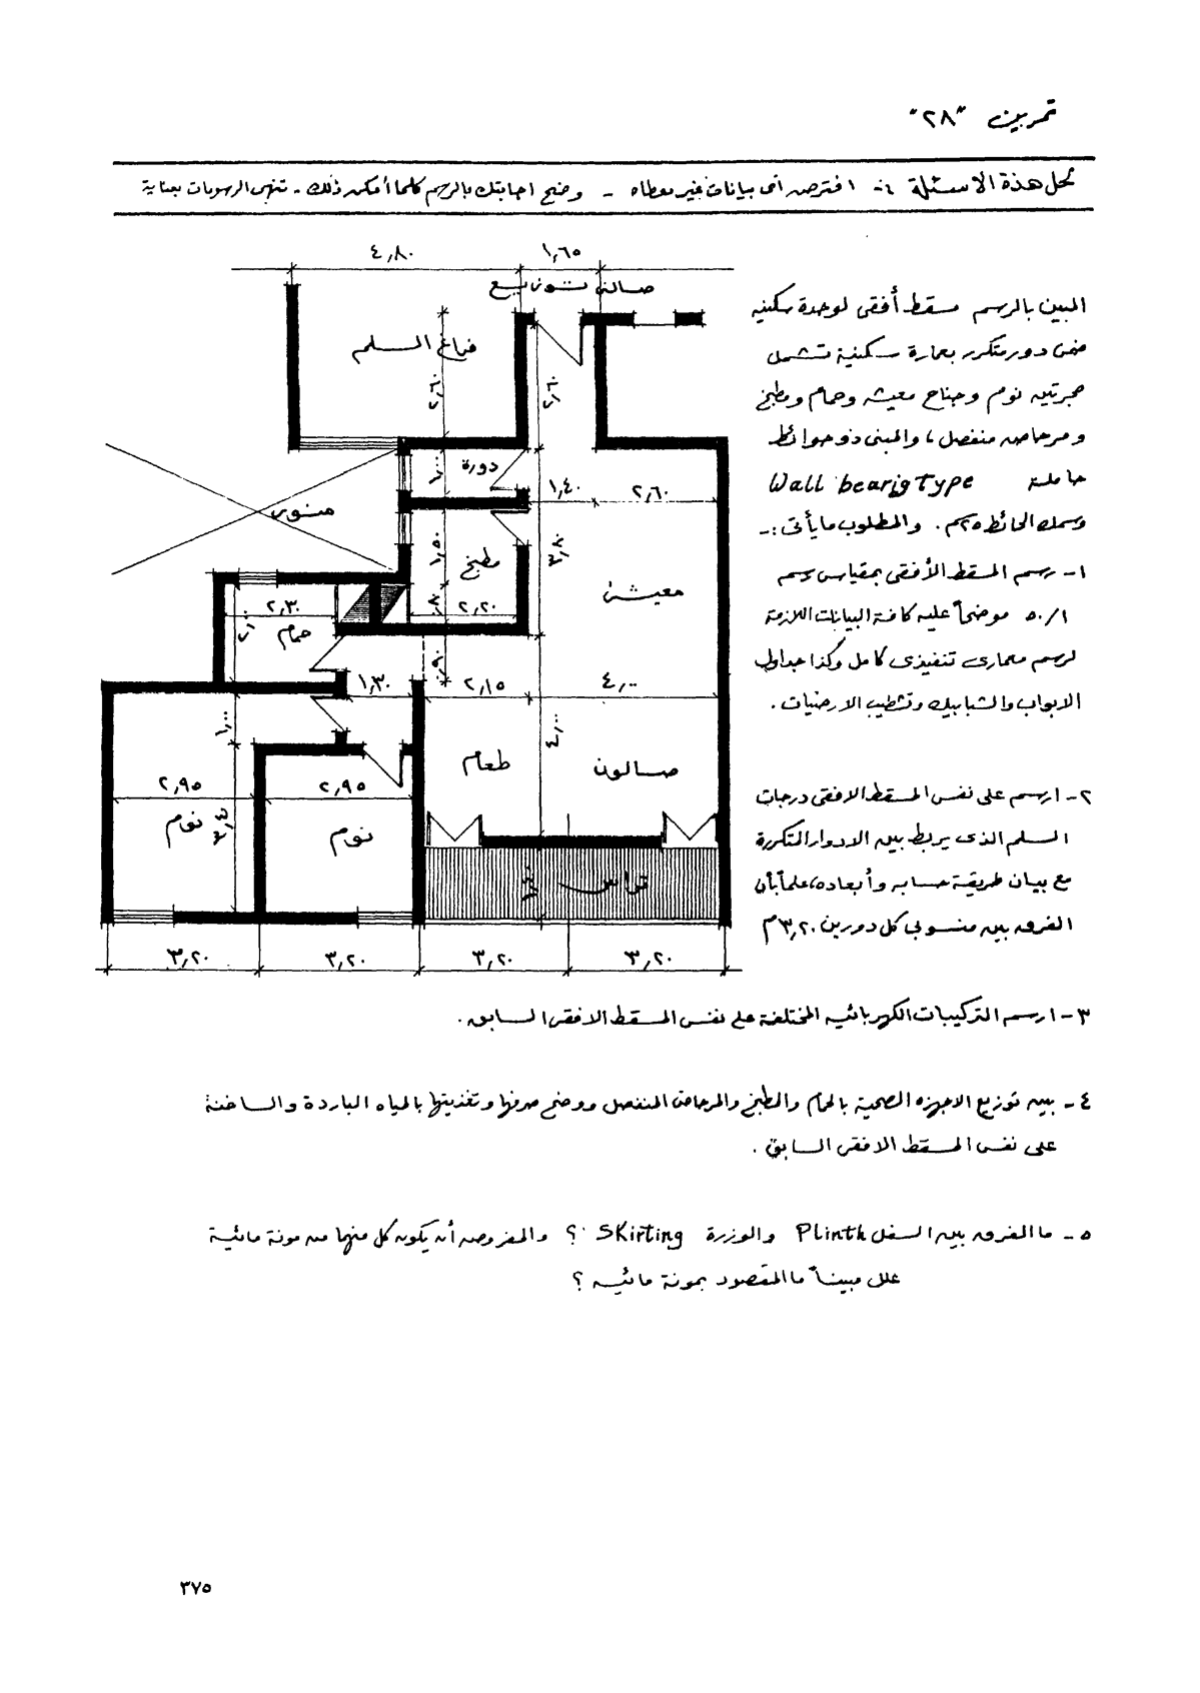 تمرين "٢٨"
تحل هذة الاسئلة :- افترض أى بيانات غير معطاه - وضح اجابتك بالرسم كلما أمكن ذلك - تنهى الرسومات بعناية
٤٫٨٠
١٫٦٥
صالة توزيع
فراغ السلم
٢٫٦٠
٢٫٦٠
دورة
١٫٠٠
١٫٤٠
٢٫٦٠
منور
١٫٥٠
مطبخ
٣٫٨٠
معيشة
٢٫٣٠
٢٫٢٠
حمام
١٫٣٠
٢٫١٥
٤٫٠٠
١٫٠٠
٤٫٠٠
طعام
صالون
٢٫٩٥
٢٫٩٥
نوم
نوم
تراس
٣٫٢٠
٣٫٢٠
٣٫٢٠
٣٫٢٠
المبين بالرسم مسقط أفقى لوحدة سكنية
ضمن دور متكرر بعمارة سكنية تشمل
حجرتين نوم وجناح معيشه وحمام ومطبخ
ومرحاض منفصل ، والمبنى ذو حوائط
حاملة Wall bearig type
وسمك الحائط ٢٥سم . والمطلوب مايأتى :-
١- رسم المسقط الأفقى بمقياس رسم
١/٥٠ موضحاً عليه كافة البيانات اللازمة
لرسم معمارى تنفيذى كامل وكذا جداول
الابواب والشبابيك وتشطيب الارضيات .
٢- ارسم على نفس المسقط الافقى درجات
السلم الذى يربط بين الادوار المتكررة
مع بيان طريقة حسابه وأبعاده، علماً بأن
الفرق بين منسوبى كل دورين ٣٫٢٠م
٣- ارسم التركيبات الكهربائيه المختلفة على نفس المسقط الافقى السابق .
٤- بين توزيع الاجهزه الصحية بالحمام والمطبخ والمرحاض المنفصل ووضح صرفها وتغذيتها بالمياه الباردة والساخنة
على نفس المسقط الافقى السابق .
٥- ما الفرق بين السفل Plinth والوزرة Skirting ؟ والمفروض أن يكون كل منهما من مونة مائية
علل مبيناً ما المقصود بمونة مائيه ؟
٣٧٥